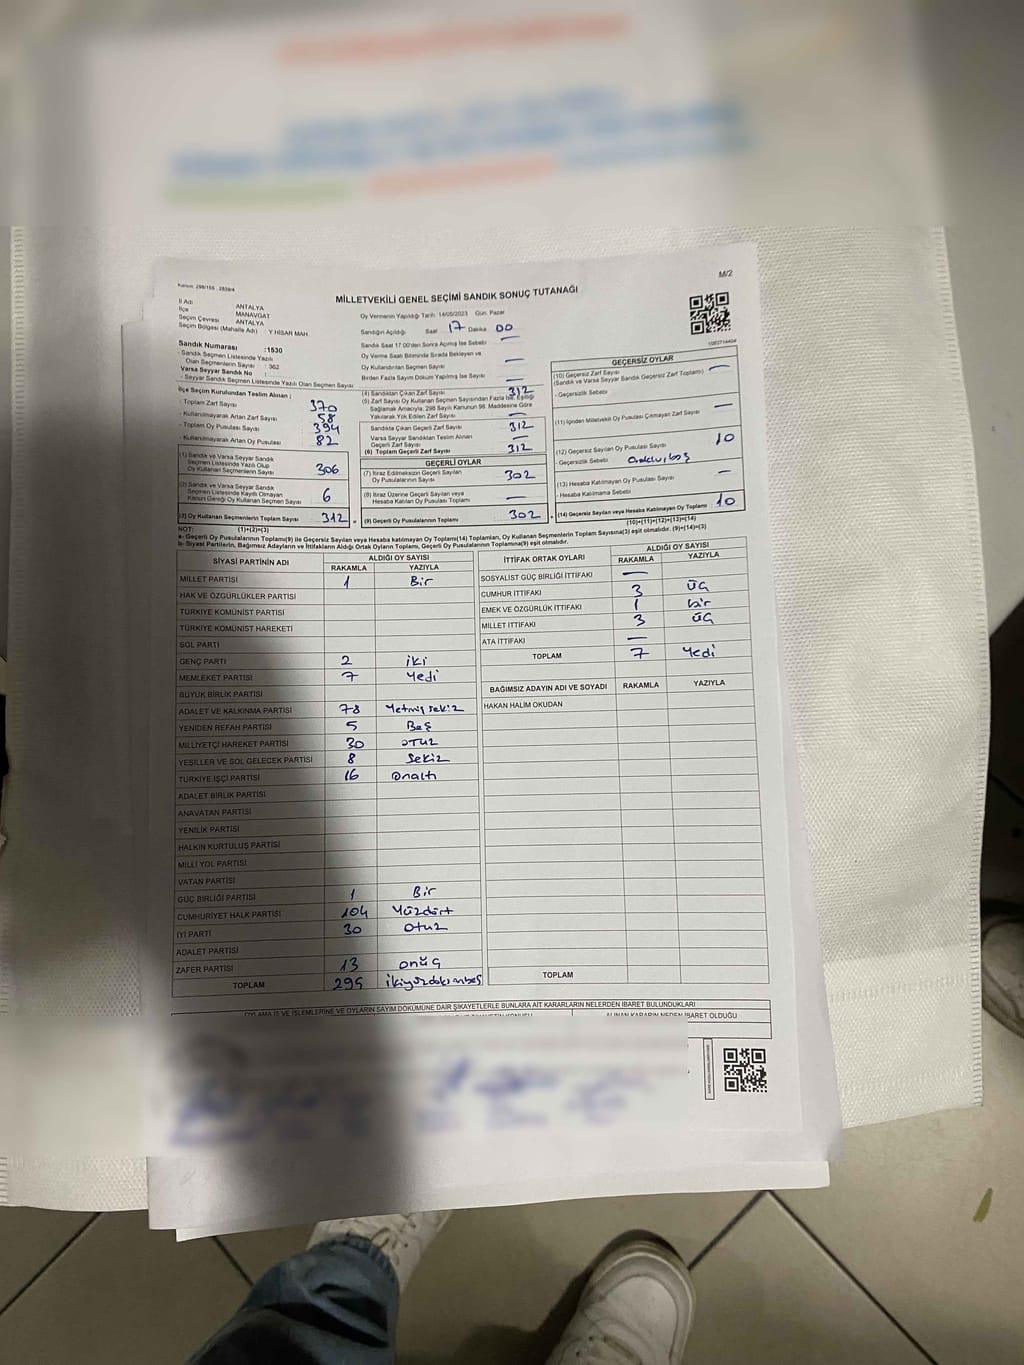 Kanun: 298/105 , 2839/4
M/2
MİLLETVEKİLİ GENEL SEÇİMİ SANDIK SONUÇ TUTANAĞI
İl Adı : ANTALYA
İlçe : MANAVGAT
Seçim Çevresi : ANTALYA
Seçim Bölgesi (Mahalle Adı) : Y HİSAR MAH.
Sandık Numarası :1530
- Sandık Seçmen Listesinde Yazılı Olan Seçmenlerin Sayısı : 362
Varsa Seyyar Sandık No :
- Seyyar Sandık Seçmen Listesinde Yazılı Olan Seçmen Sayısı
Oy Vermenin Yapıldığı Tarih: 14/05/2023 Gün: Pazar
Sandığın Açıldığı Saat 17 Dakika 00
Sandık Saat 17:00'den Sonra Açılmış İse Sebebi —
Oy Verme Saati Bitiminde Sırada Bekleyen ve
Oy Kullandırılan Seçmen Sayısı —
Birden Fazla Sayım Döküm Yapılmış İse Sayısı —
İlçe Seçim Kurulundan Teslim Alınan ;
- Toplam Zarf Sayısı 370
- Kullanılmayarak Artan Zarf Sayısı 58
- Toplam Oy Pusulası Sayısı 394
- Kullanılmayarak Artan Oy Pusulası 82
(1) Sandık ve Varsa Seyyar Sandık
Seçmen Listesinde Yazılı Olup
Oy Kullanan Seçmenlerin Sayısı 306
(2) Sandık ve Varsa Seyyar Sandık
Seçmen Listesinde Kayıtlı Olmayan
Kanun Gereği Oy Kullanan Seçmen Sayısı 6
(3) Oy Kullanan Seçmenlerin Toplam Sayısı 312
(1)+(2)=(3)
(4) Sandıktan Çıkan Zarf Sayısı 312
(5) Zarf Sayısı Oy Kullanan Seçmen Sayısından Fazla İse, Eşitliği
Sağlamak Amacıyla, 298 Sayılı Kanunun 98. Maddesine Göre
Yakılarak Yok Edilen Zarf Sayısı —
Sandıkta Çıkan Geçerli Zarf Sayısı 312
Varsa Seyyar Sandıktan Teslim Alınan
Geçerli Zarf Sayısı —
(6) Toplam Geçerli Zarf Sayısı 312
GEÇERLİ OYLAR
(7) İtiraz Edilmeksizin Geçerli Sayılan
Oy Pusulasının Sayısı 302
(8) İtiraz Üzerine Geçerli Sayılan veya
Hesaba Katılan Oy Pusulası Toplamı —
(9) Geçerli Oy Pusulalarının Toplamı 302
GEÇERSİZ OYLAR
(10) Geçersiz Zarf Sayısı —
(Sandık ve Varsa Seyyar Sandık Geçersiz Zarf Toplamı)
- Geçersizlik Sebebi
(11) İçinden Milletvekili Oy Pusulası Çıkmayan Zarf Sayısı —
(12) Geçersiz Sayılan Oy Pusulası Sayısı 10
- Geçersizlik Sebebi
(13) Hesaba Katılmayan Oy Pusulası Sayısı —
- Hesaba Katılmama Sebebi
(14) Geçersiz Sayılan veya Hesaba Katılmayan Oy Toplamı : 10
(10)+(11)+(12)+(13)=(14)
NOT:
a- Geçerli Oy Pusulalarının Toplamı(9) ile Geçersiz Sayılan veya Hesaba katılmayan Oy Toplamı(14) Toplamları, Oy Kullanan Seçmenlerin Toplam Sayısına(3) eşit olmalıdır. (9)+(14)=(3)
b- Siyasi Partilerin, Bağımsız Adayların ve İttifakların Aldığı Ortak Oyların Toplamı, Geçerli Oy Pusulalarının Toplamına(9) eşit olmalıdır.
SİYASİ PARTİNİN ADI ALDIĞI OY SAYISI
RAKAMLA YAZIYLA
MİLLET PARTİSİ 1 Bir
HAK VE ÖZGÜRLÜKLER PARTİSİ
TÜRKİYE KOMÜNİST PARTİSİ
TÜRKİYE KOMÜNİST HAREKETİ
SOL PARTİ
GENÇ PARTİ 2 iki
MEMLEKET PARTİSİ 7 Yedi
BÜYÜK BİRLİK PARTİSİ
ADALET VE KALKINMA PARTİSİ 78 Yetmiş sekiz
YENİDEN REFAH PARTİSİ 5 Beş
MİLLİYETÇİ HAREKET PARTİSİ 30 otuz
YEŞİLLER VE SOL GELECEK PARTİSİ 8 Sekiz
TÜRKİYE İŞÇİ PARTİSİ 16 Onaltı
ADALET BİRLİK PARTİSİ
ANAVATAN PARTİSİ
YENİLİK PARTİSİ
HALKIN KURTULUŞ PARTİSİ
MİLLİ YOL PARTİSİ
VATAN PARTİSİ
GÜÇ BİRLİĞİ PARTİSİ 1 Bir
CUMHURİYET HALK PARTİSİ 104 Yüzdört
İYİ PARTİ 30 otuz
ADALET PARTİSİ
ZAFER PARTİSİ 13 onüç
TOPLAM 295 ikiyüzdoksanbeş
İTTİFAK ORTAK OYLARI ALDIĞI OY SAYISI
RAKAMLA YAZIYLA
SOSYALİST GÜÇ BİRLİĞİ İTTİFAKI —
CUMHUR İTTİFAKI 3 üç
EMEK VE ÖZGÜRLÜK İTTİFAKI 1 bir
MİLLET İTTİFAKI 3 üç
ATA İTTİFAKI —
TOPLAM 7 Yedi
BAĞIMSIZ ADAYIN ADI VE SOYADI RAKAMLA YAZIYLA
HAKAN HALİM OKUDAN
TOPLAM
OYLAMA İŞ VE İŞLEMLERİNE VE OYLARIN SAYIM DÖKÜMÜNE DAİR ŞİKAYETLERLE BUNLARA AİT KARARLARIN NELERDEN İBARET BULUNDUKLARI
ALINAN KARARIN NEDEN İBARET OLDUĞU